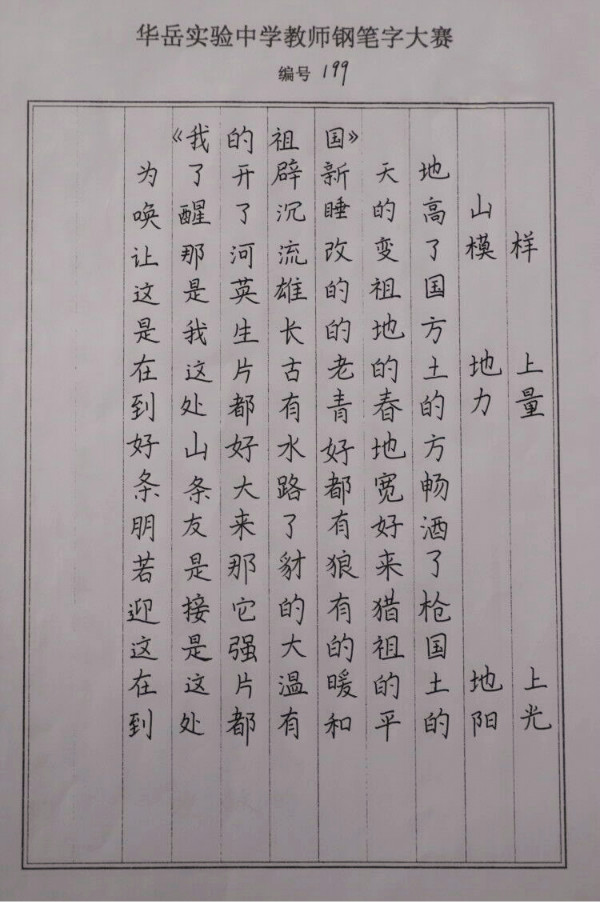 华岳实验中学教师钢笔字大赛
编号 199
《我的祖国》
为了开辟新天地
唤醒了沉睡的高山
让那河流改变了模样
这是英雄的祖国
是我生长的地方
在这片古老的土地上
到处都有青春的力量
好山好水好地方
条条大路都宽畅
朋友来了有好酒
若是那豺狼来了
迎接它的有猎枪
这是强大的祖国
在这片温暖的土地上
到处都有和平的阳光